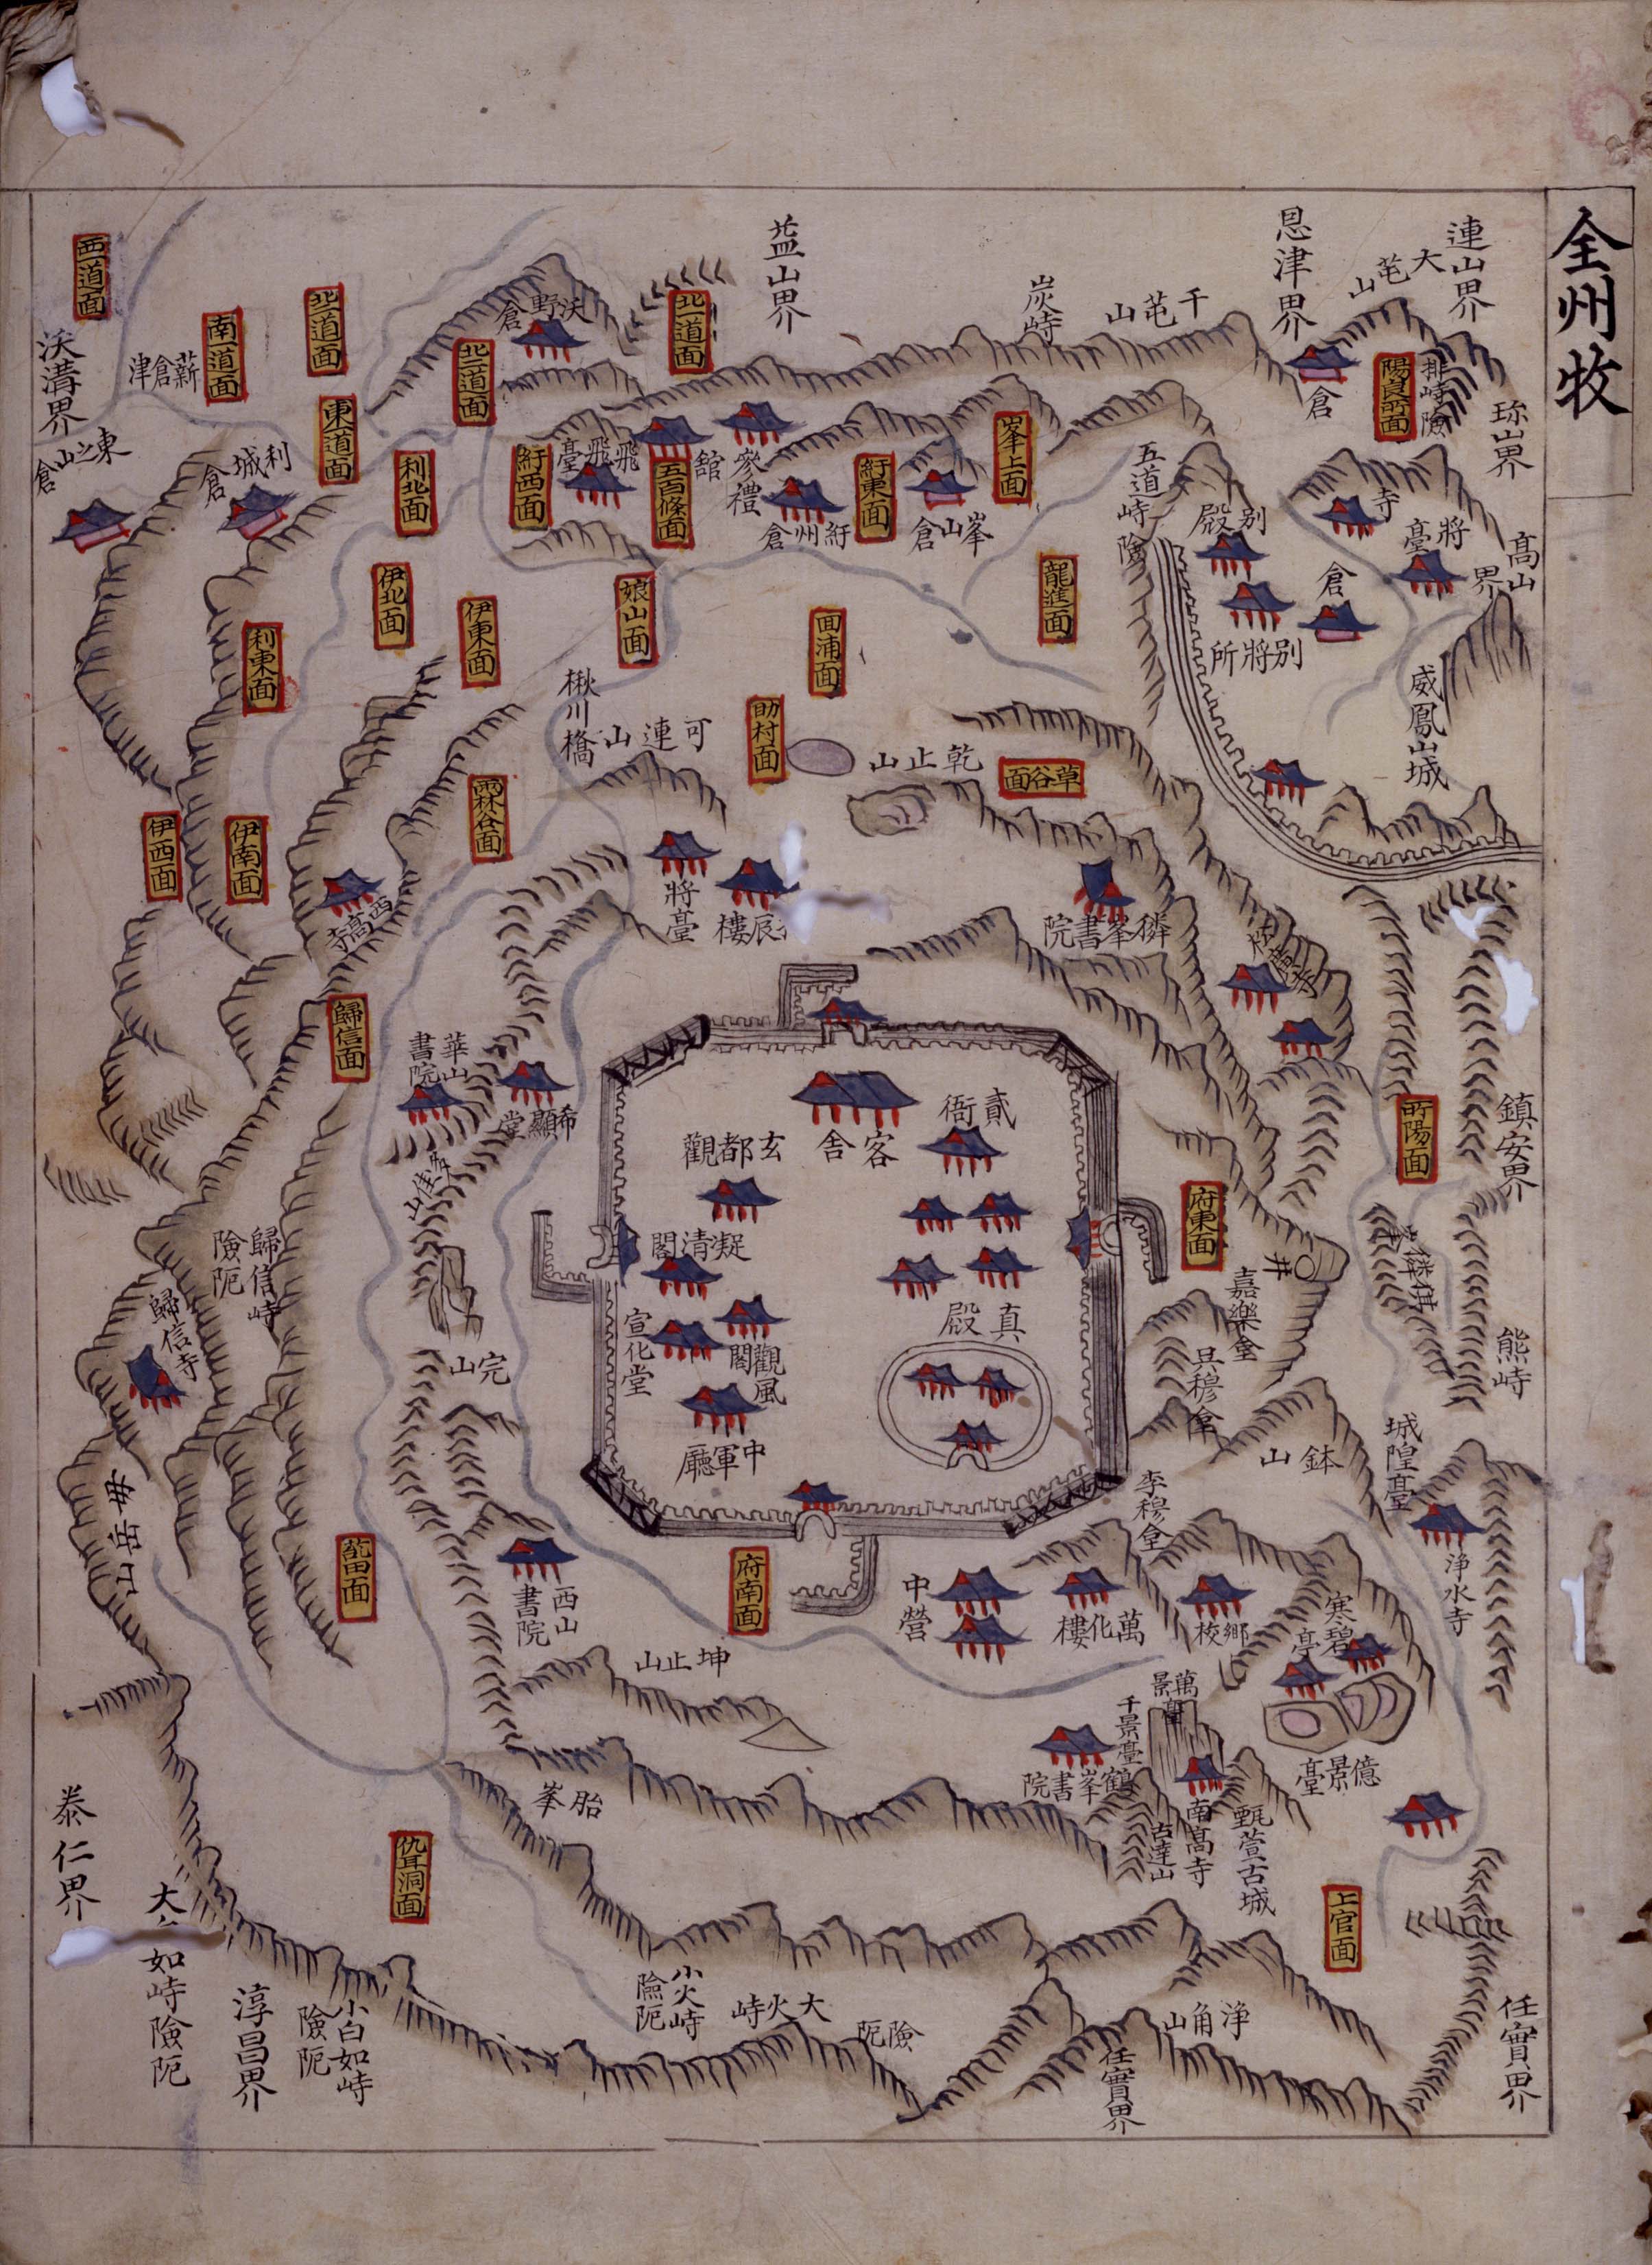 全州牧
連山界
大芚山
恩津界
千芚山
炭峙
益山界
珎山界
梨峙險
陽良所面
倉
高山界
將臺
寺
別殿
倉
別將所
威鳳山城
五道峙險
峯上面
峯山倉
紆東面
紆州倉
參禮
舘
五百條面
飛飛臺
紆西面
北一道面
沃野倉
北道面
南一道面
西一道面
東道面
薪倉津
沃溝界
東之山倉
利城倉
利北面
伊北面
伊東面
利東面
娘山面
回浦面
龍進面
助村面
乾止山
草谷面
可連山
楸川橋
雨林谷面
伊西面
伊南面
西高寺
將臺
辰樓
獜峯書院
歸信面
華山書院
希顯堂
客舍
貳衙
玄都觀
凝清閣
宣化堂
觀風閣
中軍廳
真殿
完山
歸信峙險阨
歸信寺
母岳山
所陽面
鎮安界
府東面
井
熊峙
城隍臺
淨水寺
鉢山
寒碧亭
鄉校
萬化樓
中營
府南面
西山書院
坤止山
胎峯
萬景臺
千景臺
鶴峯書院
南高寺
古達山
甄萱古城
億景臺
上官面
任實界
淨角山
任實界
險阨
大火峙
小火峙險阨
小白如峙險阨
淳昌界
大
如峙險阨
泰仁界